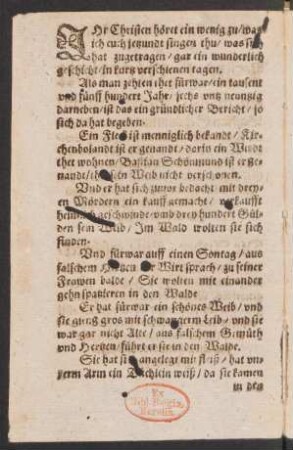 IHr Christen höret ein wenig zu / was
ich euch jetzundt singen thu / was sich
hat zugetragen / gar ein wunderlich
geschicht / in kurtz verschienen tagen.
Als man zehlen thet fürwar / ein tausent
vnd fünff hundert Jahr / sechs vnd neuntzig
darneben / ist das ein gründlicher Bericht / so
sich da hat begeben.
Ein Fleck ist menniglich bekandt / Kir-
chenbolandt ist er genandt / darin ein Wirdt
thet wohnen / Bastian Schönmund ist er ge-
nandt / Weib nicht verschonen.
Vnd er hat sich zuvor bedacht mit drey-
en Mördern ein kauff gemacht / verkaufft
heimlich geschwinde / vmb drey hundert Gül-
den sein Weib / Im Wald wolten sie sich
finden.
Vnd fürwar auff einen Sontag / aus
falschem Hertzen der Wirt sprach / zu seiner
Frawen balde / Sie wolten mit einander
gehn spatzieren in den Walde
Er hat fürwar ein schönes Weib / vnd
sie gieng gros mit schwangerm Leib / vnd sie
war gar nicht Alte / aus falschem Gemüth
vnd Hertzen / führt er sie in den Walde.
Sie hat sich angelegt mit fleiß / hat vn-
term Arm ein Tüchlein weiß / da sie kamen
in den
Ex
Berolin.